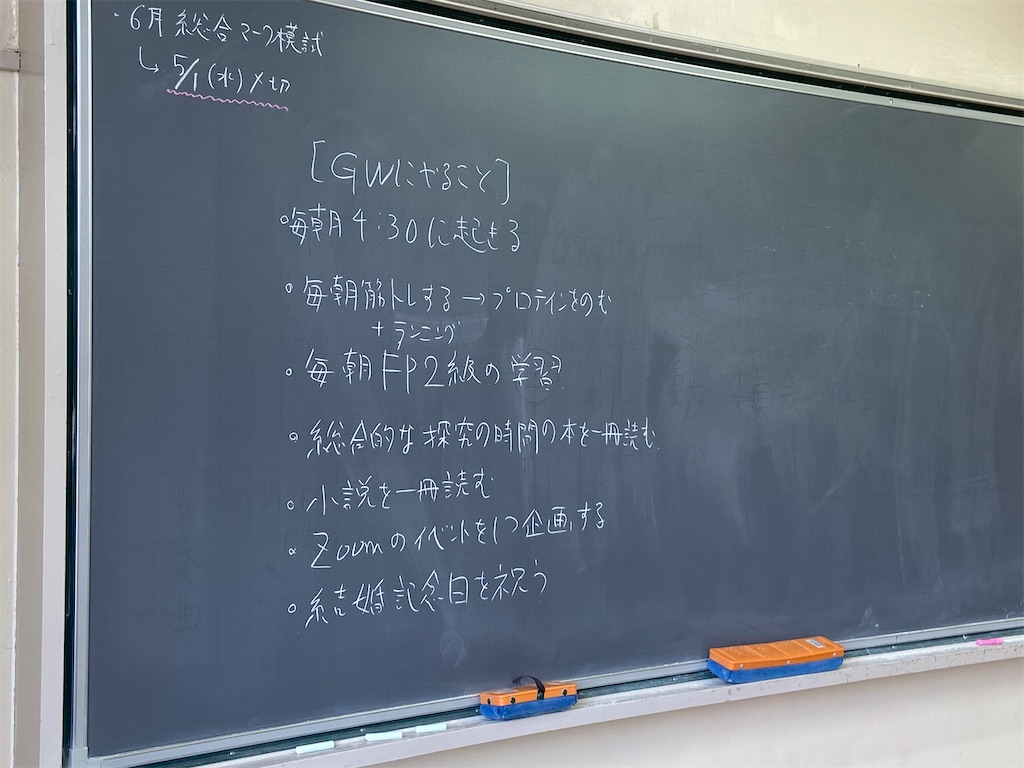 ・6月 総合マーク模試
↳ 5/1(水)〆切
[GWにやること]
◦毎朝4:30に起きる
◦毎朝筋トレする→プロテインをのむ
+ランニング
◦毎朝FP2級の学習
◦総合的な探究の時間の本を一冊読む
◦小説を一冊読む
◦Zoomのイベントを1つ企画する
◦結婚記念日を祝う